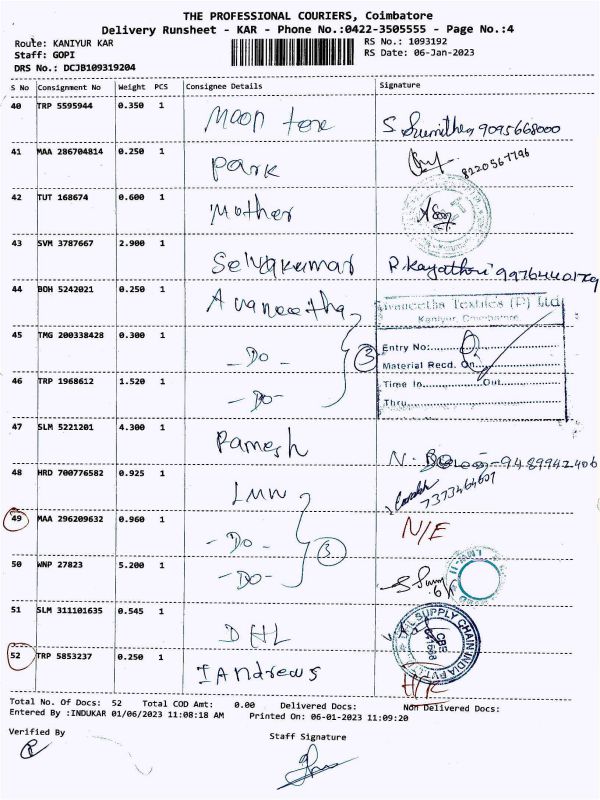 THE PROFESSIONAL COURIERS, Coimbatore
Delivery Runsheet - KAR - Phone No.:0422-3505555 - Page No.:4
Route: KANIYUR KAR
RS No.: 1093192
Staff: GOPI
RS Date: 06-Jan-2023
DRS No.: DCJB109319204
S No Consignment No Weight PCS Consignee Details Signature
40 TRP 5595944 0.350 1 Moon S. Sumithra 9095668000
41 MAA 286704814 0.250 1 Park 8220567796
42 TUT 168674 0.600 1 Mother
43 SVM 3787667 2.900 1 Selvakumar
44 BOH 5242021 0.250 1 Avaneetha
Avaneetha Textiles (P) Ltd
Kaniyur, Coimbatore
45 TMG 200338428 0.300 1 - Do - 3 Entry No:
Material Recd. On
46 TRP 1968612 1.520 1 - Do - Time In Out
Thru
47 SLM 5221201 4.300 1 Ramesh N. 9489942406
48 HRD 700776582 0.925 1 LMW 7373464607
49 MAA 296209632 0.960 1 - Do - 3 N/E
50 WNP 27823 5.200 1 - Do -
51 SLM 311101635 0.545 1 DHL SUPPLY CHAIN INDIA PVT
52 TRP 5853237 0.250 1 I Andrews
Total No. Of Docs: 52 Total COD Amt: 0.00 Delivered Docs: Non Delivered Docs:
Entered By :INDUKAR 01/06/2023 11:08:18 AM Printed On: 06-01-2023 11:09:20
Verified By
Staff Signature